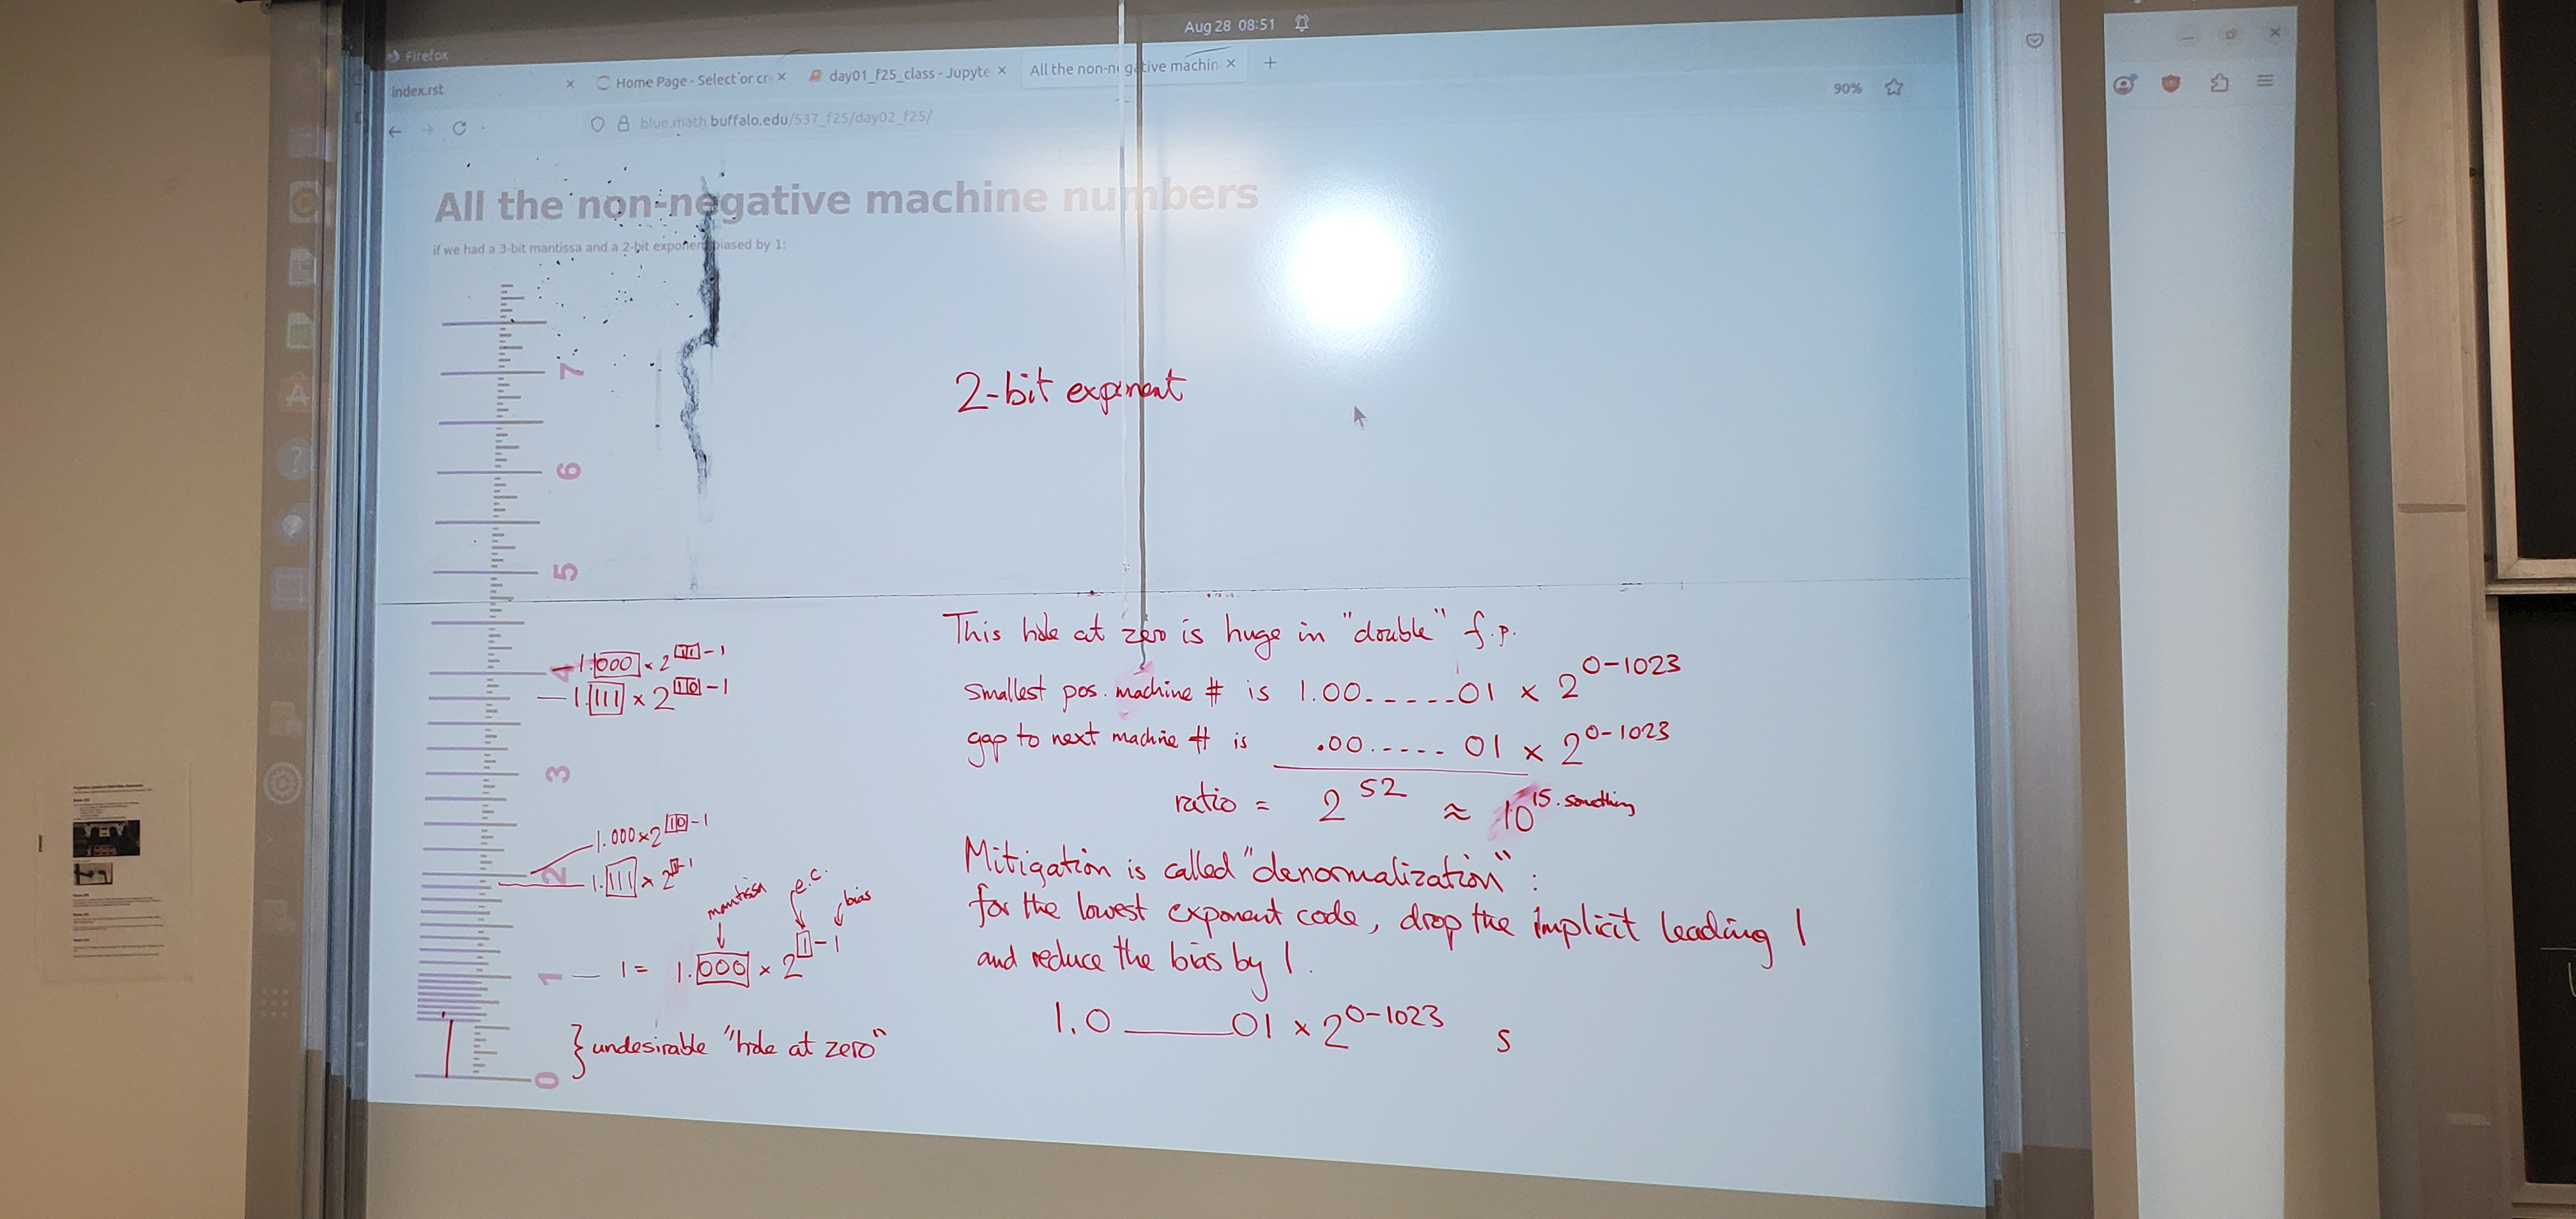 Aug 28 08:51
Firefox
index.rst × Home Page - Select or cr × day01_f25_class - Jupyte × All the non-negative machin × +
blue.math.buffalo.edu/537_f25/day02_f25/
90%
All the non-negative machine numbers
if we had a 3-bit mantissa and a 2-bit exponent biased by 1:
7
6
5
4
3
2
1
0
2-bit exponent
1.000 × 2^11-1
1.111 × 2^10-1
1.000×2^10-1
1.111 × 2^1-1
mantissa e.c. bias
1 = 1.000 × 2^1-1
} undesirable "hole at zero"
This hole at zero is huge in "double" f.p.
smallest pos. machine # is 1.00-----01 × 2^0-1023
gap to next machine # is .00-----01 × 2^0-1023
ratio = 2^52 ≈ 10^15.something
Mitigation is called "denormalization" :
for the lowest exponent code, drop the implicit leading 1
and reduce the bias by 1.
1.0____01 × 2^0-1023 s